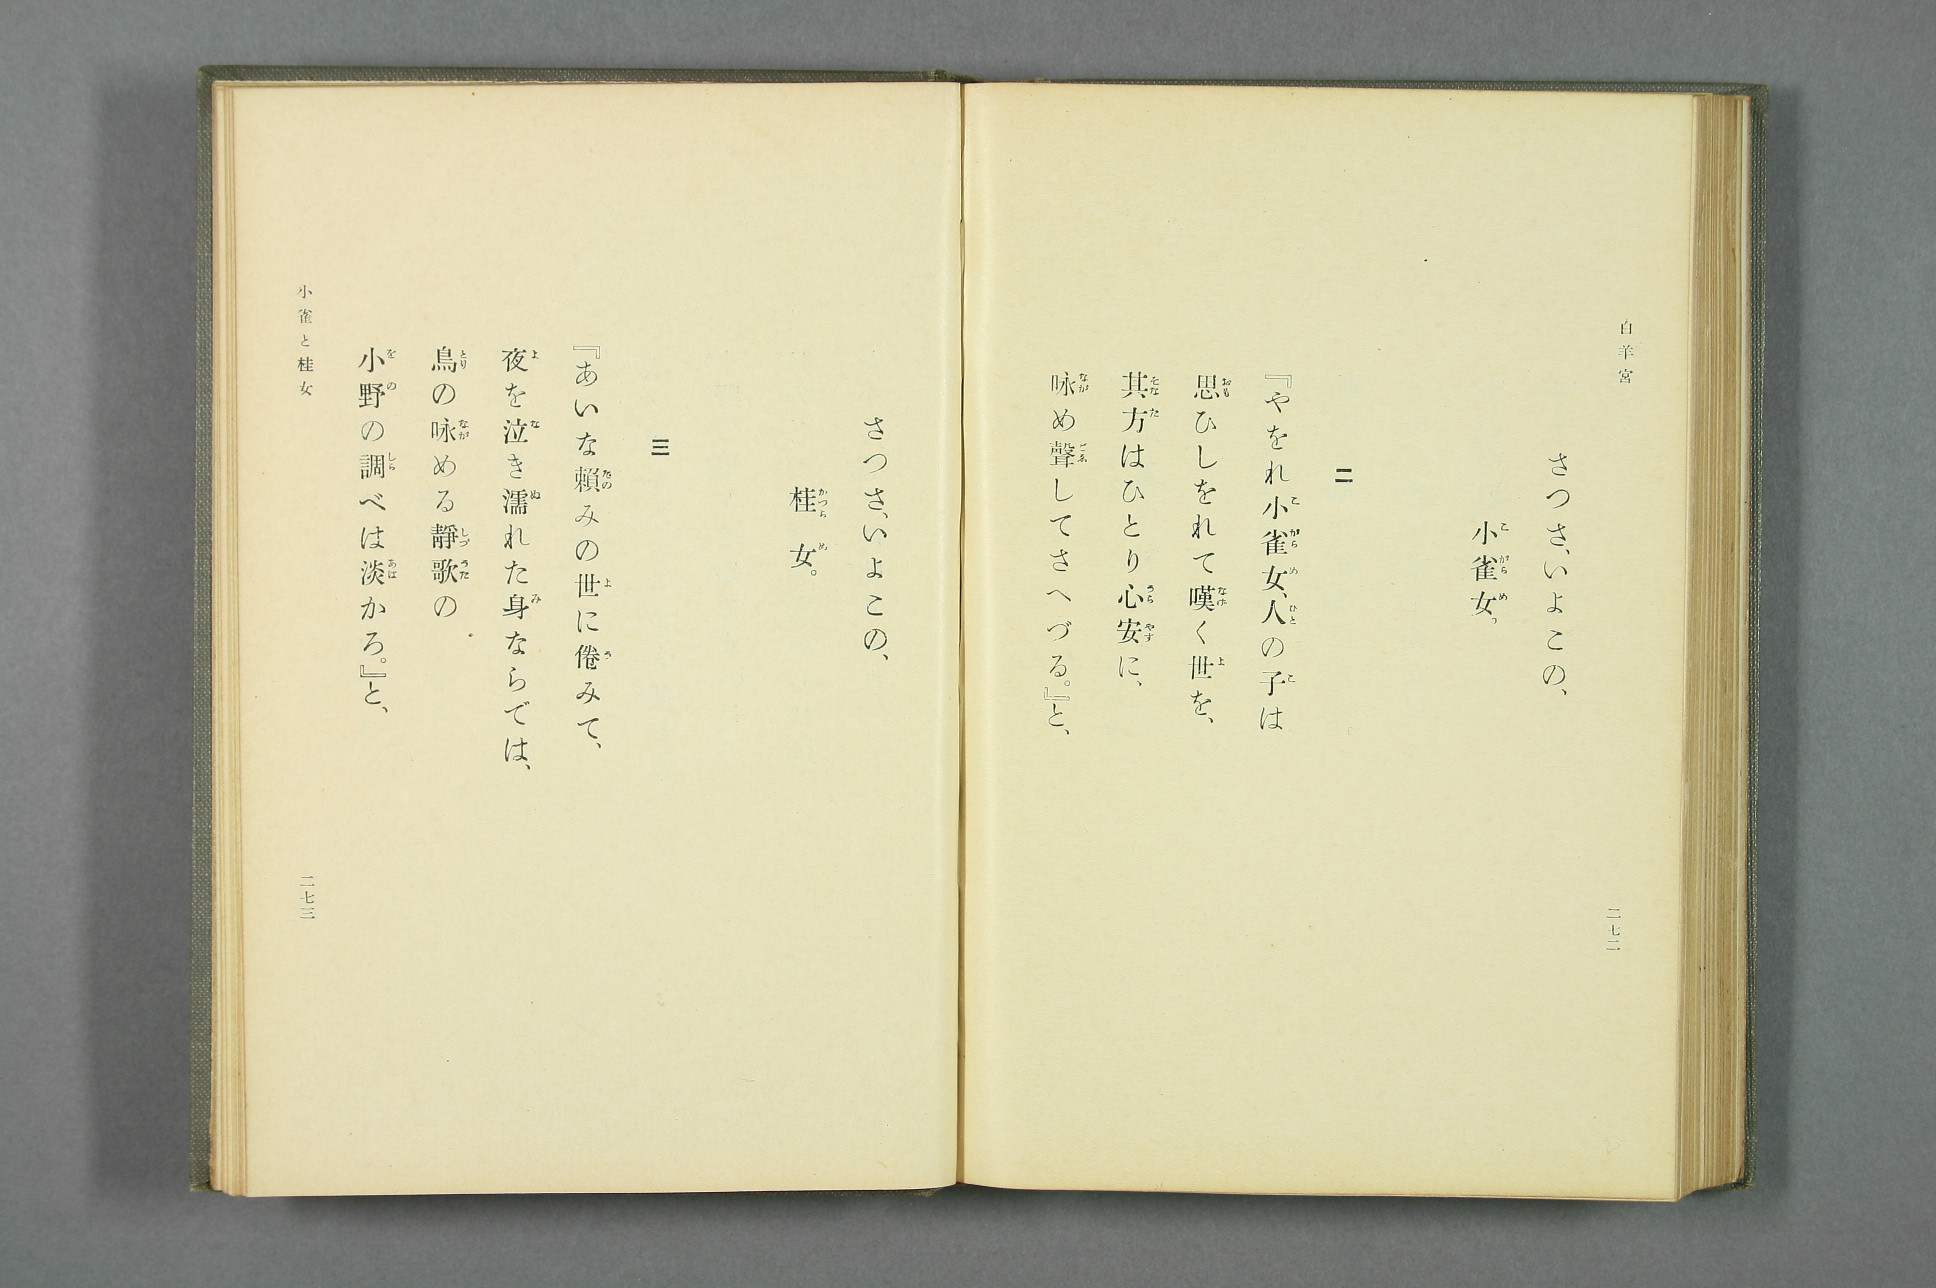 白羊宮
さつさ、いよこの、
小雀女。
二
『やをれ小雀女、人の子は
思ひしをれて嘆く世を、
其方はひとり心安に、
咏め聲してさへづる。』と、
二七二
さつさ、いよこの、
桂女。
三
『あいな賴みの世に倦みて、
夜を泣き濡れた身ならでは、
鳥の咏める靜歌の
小野の調べは淡かろ。』と、
小雀と桂女
二七三